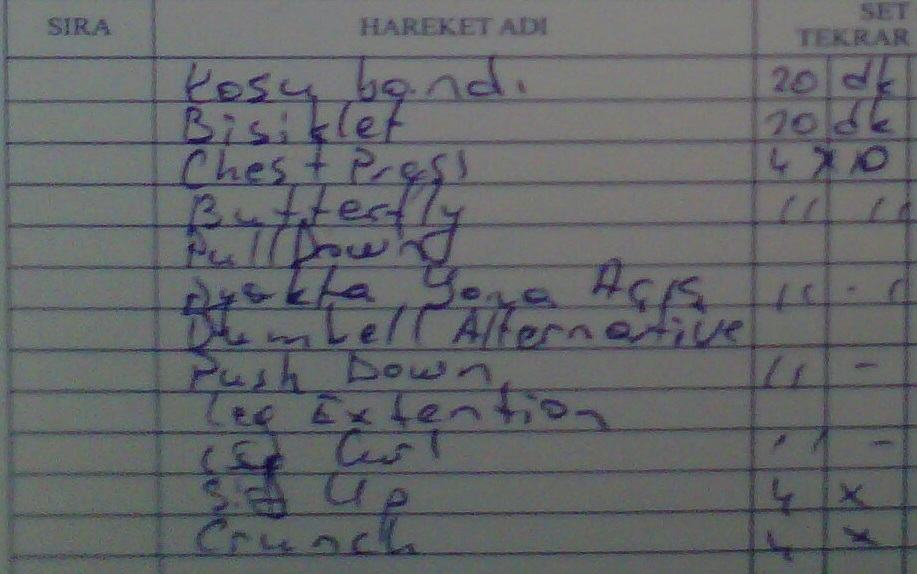 SIRA HAREKET ADI SET TEKRAR
Koşu bandı 20 dk
Bisiklet 20 dk
Chest Press 4 x 10
Butterfly " "
Pull Down
Ayakta Yana Açış " "
Dumbell Alternative
Push Down " -
Leg Extention
Leg Curl " -
Sit Up 4 x
Crunch 4 x